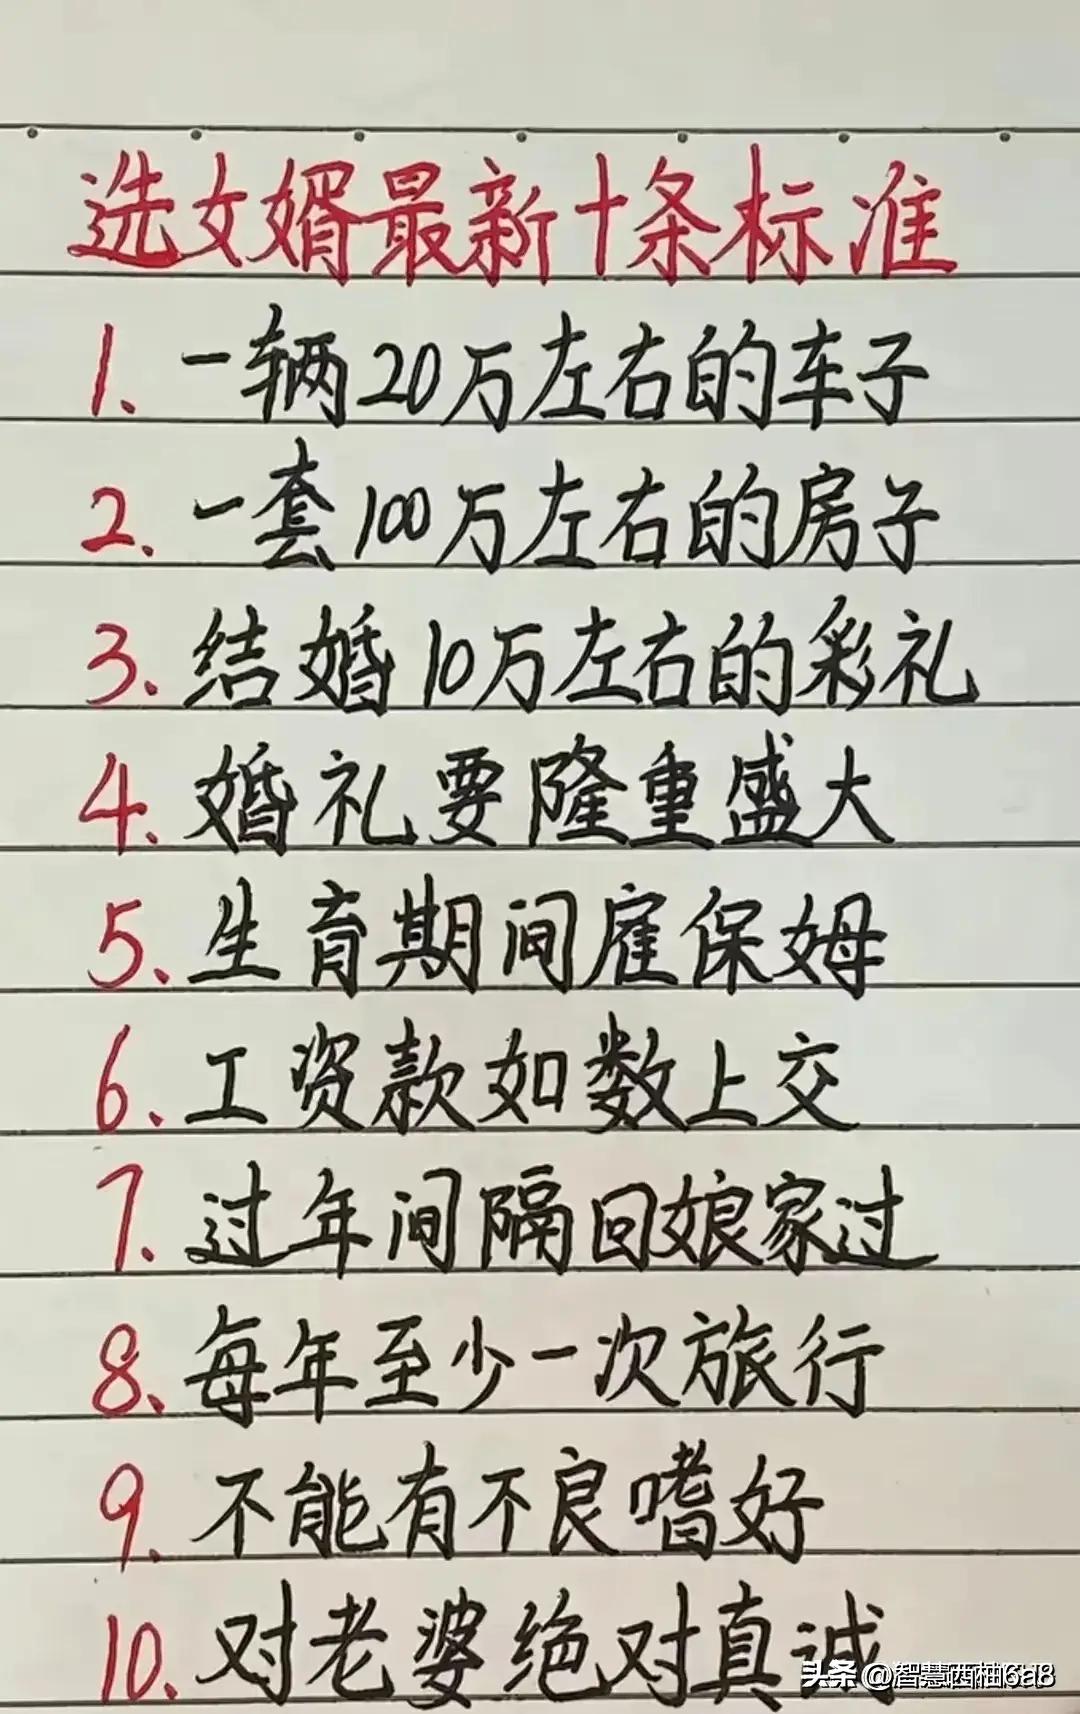 选女婿最新十条标准
1、一辆20万左右的车子
2、一套100万左右的房子
3、结婚10万左右的彩礼
4、婚礼要隆重盛大
5、生育期间雇保姆
6、工资款如数上交
7、过年间隔回娘家过
8、每年至少一次旅行
9、不能有不良嗜好
10、对老婆绝对真诚
头条 @智慧西柚6a8